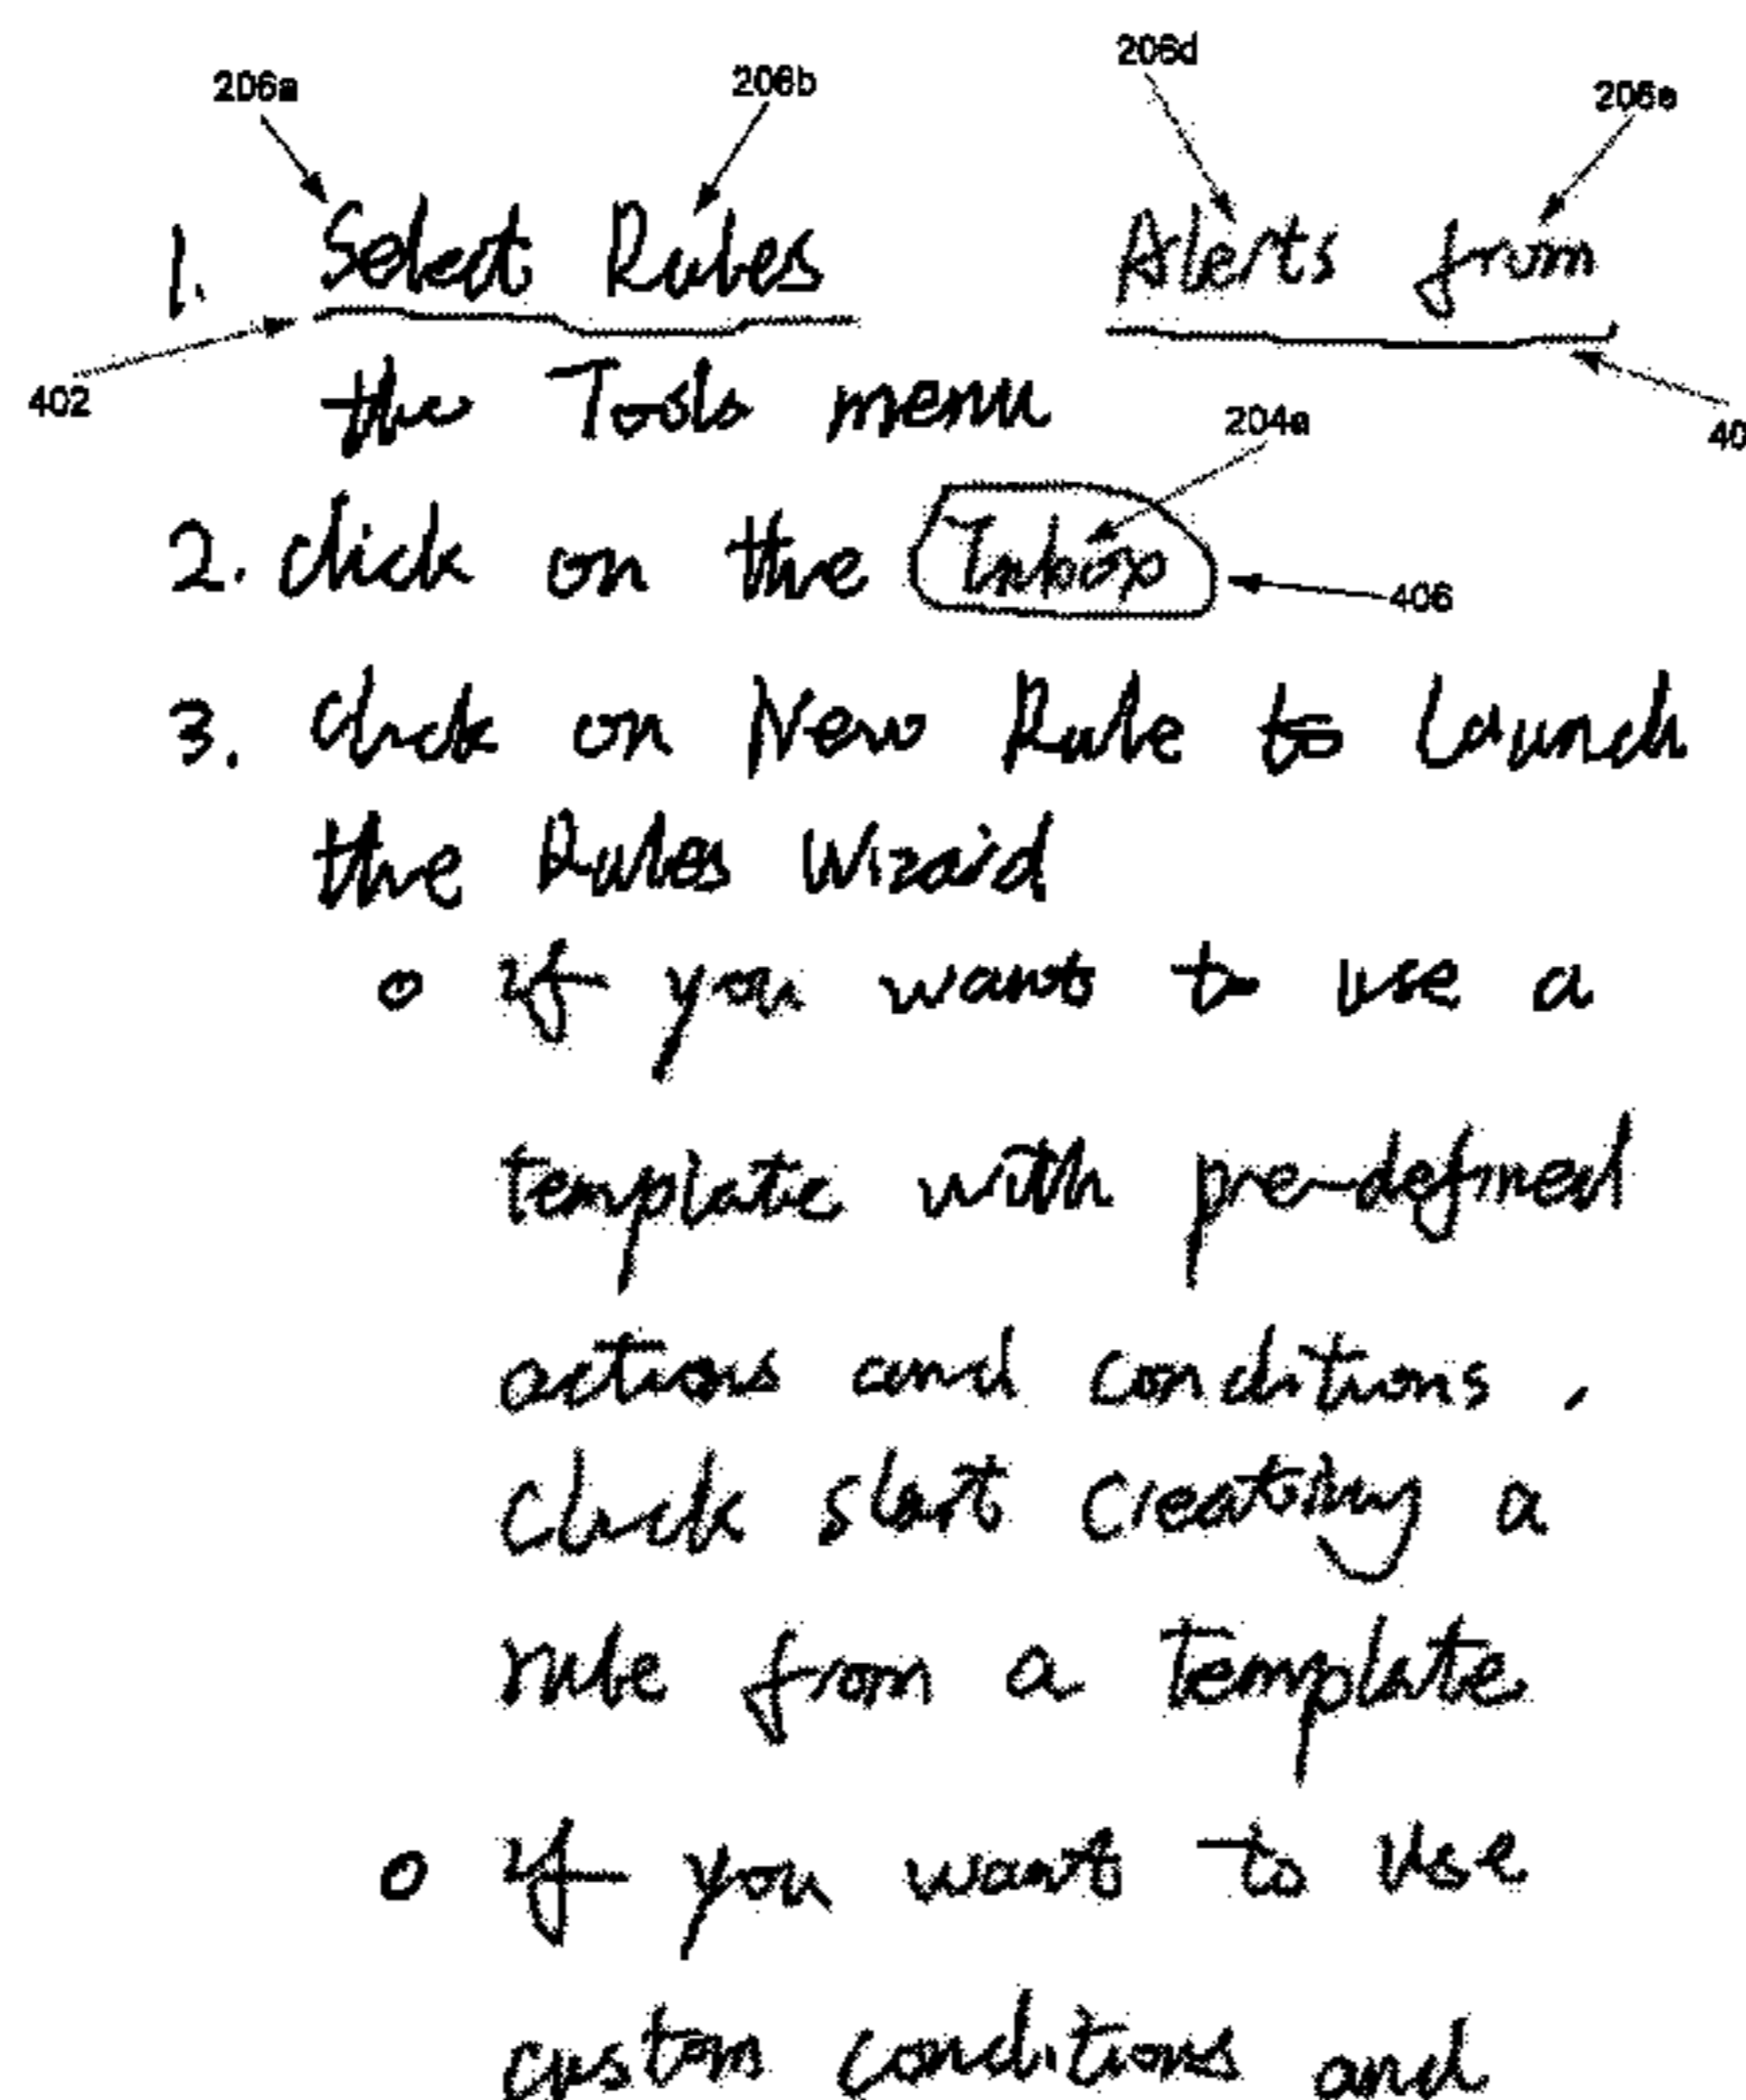 206a 206b 206d 206e
1. Select Rules Alerts from
402
the Tools menu 204a 40
2. click on the Inbox 406
3. click on New Rule to launch
the Rules Wizard
o if you want to use a
template with pre-defined
actions and conditions,
click start creating a
rule from a template
o if you want to use
custom conditions and